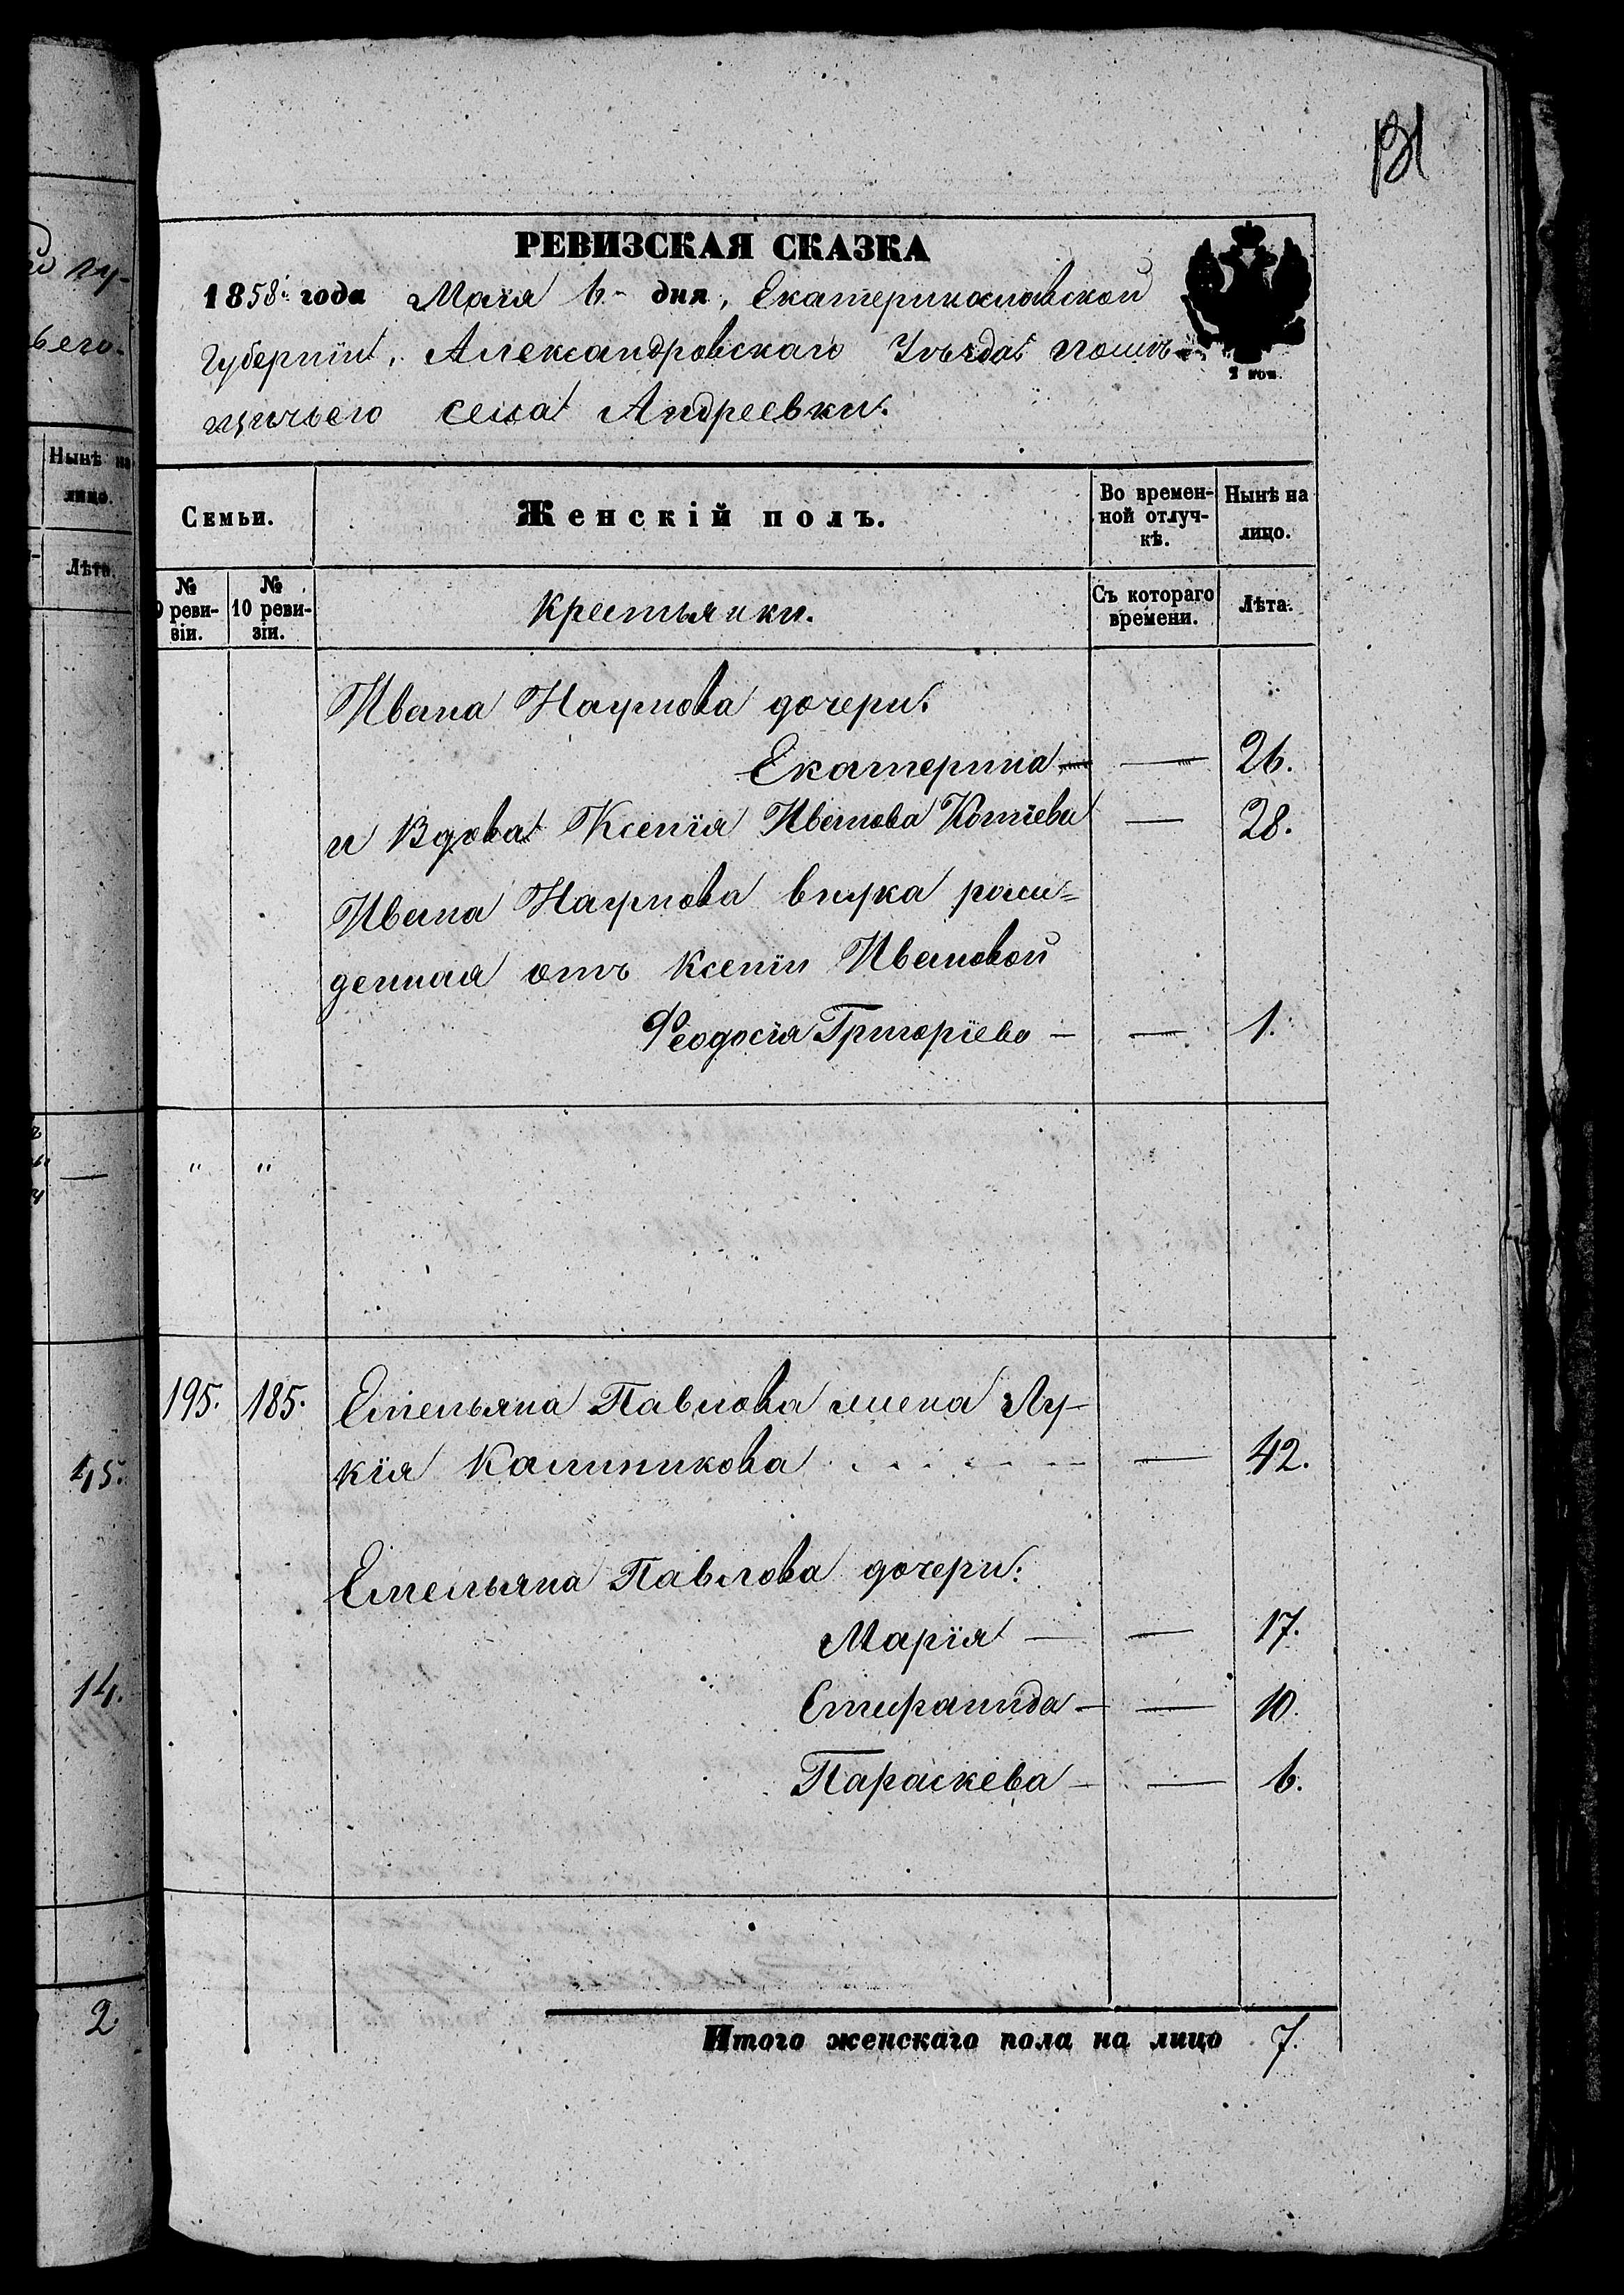 131
РЕВИЗСКАЯ СКАЗКА
1858 года Маія 6 дня, Екатеринославской
Губерніи, Александровскаго Уѣзда помѣ-
щичьего села Андреевки.
2 коп.
Семьи.
Женскій полъ.
Во времен-
ной отлуч-
кѣ.
Нынѣ на
лицо.
№
9 реви-
зіи.
№
10 реви-
зіи.
Крестьянки.
Съ котораго
времени.
Лѣта.
Ивана Наумова дочери:
Екатерина — — 26.
и Вдова Ксенія Иванова — 28.
Ивана Наумова внука рож-
денная отъ Ксеніи Ивановой
Феодосія Григоріева — — 1.
" "
195. 185. Емельяна Павлова жена Лу-
кія Калиникова — 42.
Емельяна Павлова дочери:
Марія — — 17.
— — 10.
Параскева — — 6.
Итого женскаго пола на лицо 7.
Нынѣ на
лицо.
Лѣта.
45.
14.
2.